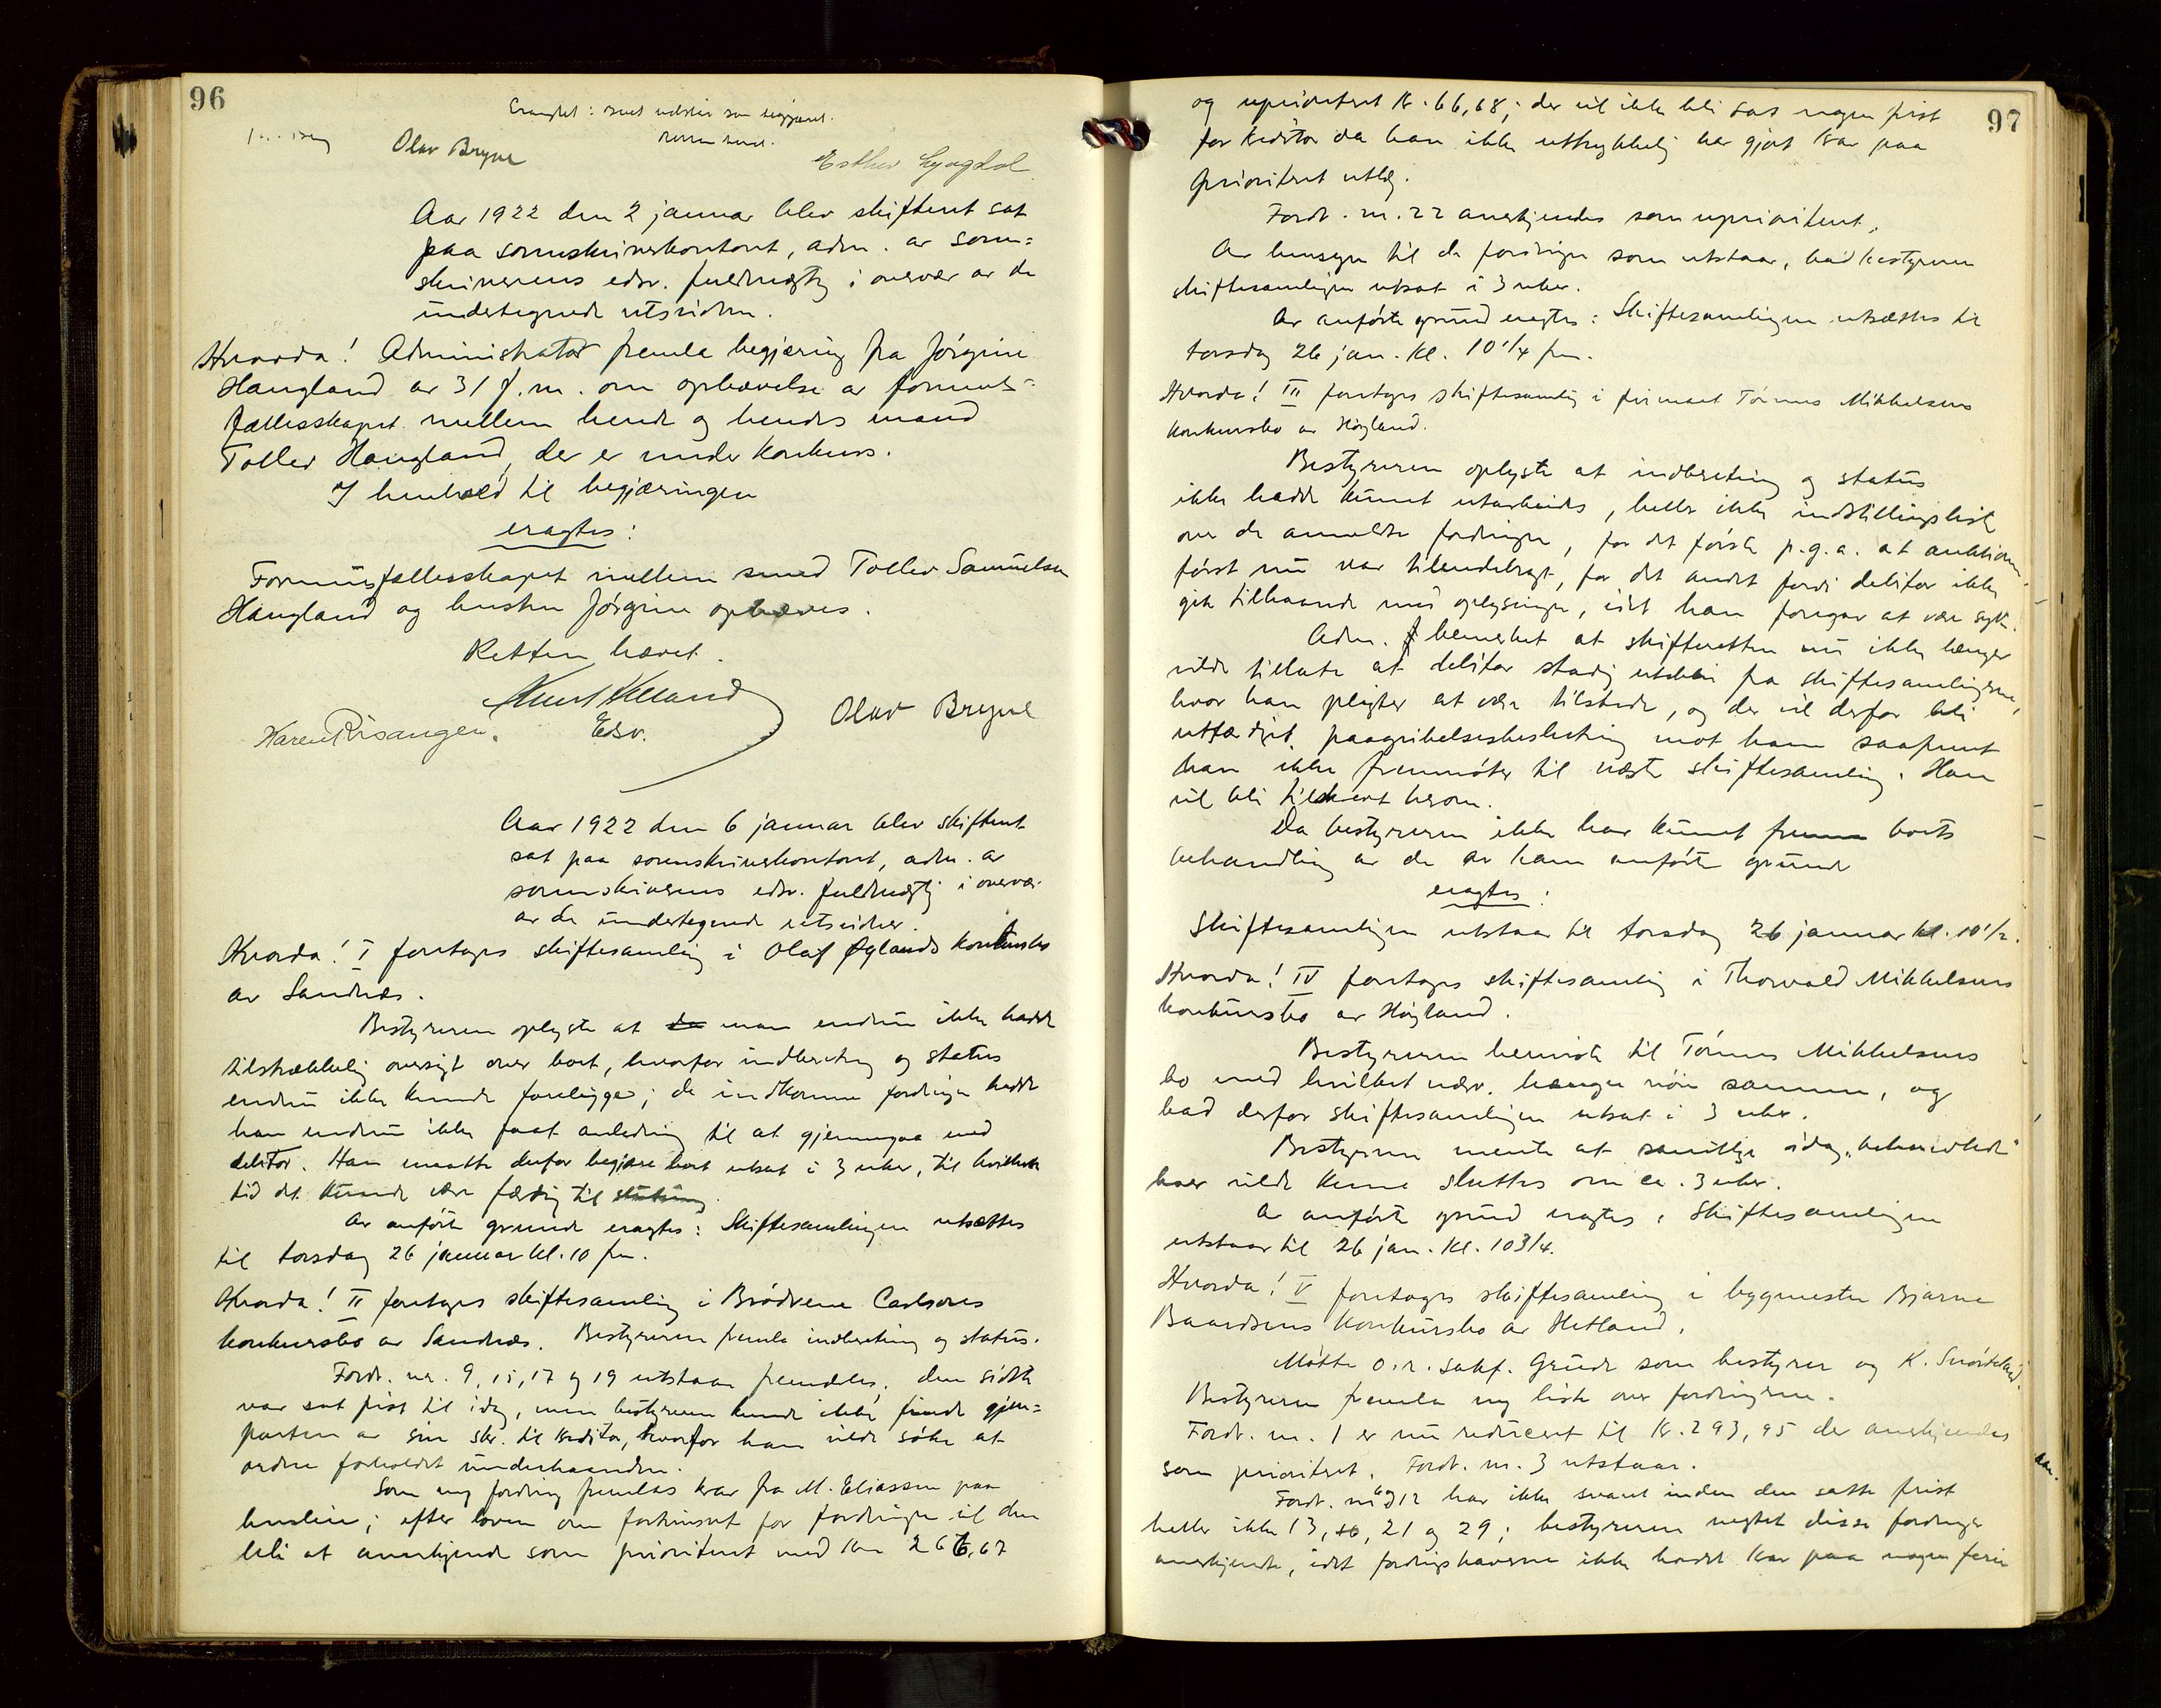 96
Eragtet: snet utstaar som begjæret.
Retten hævet.
Olav Bryne
Esther Lyngdal
Aar 1922 den 2 januar blev skifteret sat
paa sorenskriverkontoret, adm. av soren=
skriverens edsv. fuldmægtig i overvær av de
undertegnede retsvidner.
Hvorda! Administrator fremla begjæring fra Jörgine
Haugland av 31 f.m. om ophævelse av formues=
fællesskapet mellem hende og hendes mand
Tollev Haugland, der er under konkurs.
I henhold til begjæringen
eragtes:
Formuesfællesskapet mellem smed Tollev Samuelsen
Haugland og hustru Jörgine ophæves.
Retten hævet.
Knut Kelland
Edsv.
Karen Risangen.
Olav Bryne
Aar 1922 den 6 januar blev skifteret
sat paa sorenskriverkontoret, adm. av
sorenskriverens edsv. fuldmægtig i overvær
av de undertegnede retsvidner.
Hvorda! I foretoges skiftesamling i Olaf Øglands konkursbo
av Sandnes.
Bestyreren oplyste at da man endnu ikke hadde
tilstrækkelig oversigt over boet, hvorfor indberetning og status
endnu ikke kunde foreligge; de indkomne fordringer hadde
han endnu ikke faat anledning til at gjennemgaa med
debitor. Han maatte derfor begjære boet utsat i 3 uker, til hvilken
tid det kunde være færdig til slutning.
Av anförte grunde eragtes: Skiftesamlingen utsættes
til torsdag 26 januar kl. 10 fm.
Hvorda! II foretoges skiftesamling i Brödrene Carlsens
konkursbo av Sandnes. Bestyreren fremla indberetning og status.
Fordr. nr. 9, 15, 17 og 19 utstaar fremdeles; den sidste
var sat frist til idag, men bestyreren kunde ikke finde gjen=
parten av sin skr. til kreditor, hvorfor han vilde söke at
ordne forholdet underhaanden.
Som ny fordring fremlas krav fra M. Eliassen paa
husleie; efter loven om fortrinsret for fordringer vil den
bli at anerkjende som prioritert med kr 266,67
97
og uprioritert kr. 66,68; der vil ikke bli sat nogen frist
for kreditor da han ikke uttrykkelig har gjort krav paa
prioritert utlæg.
Fordr. nr. 22 anerkjendes som uprioritert.
Av hensyn til de fordringer som utstaar, bad bestyreren
skiftesamlingen utsat i 3 uker.
Av anförte grund eragtes: Skiftesamlingen utsættes til
torsdag 26 jan. kl. 10 1/4 fm.
Hvorda! III foretoges skiftesamling i firmaet Tönnes Mikkelsens
konkursbo av Höyland.
Bestyreren oplyste at indberetning og status
ikke hadde kunnet utarbeides, heller ikke indstillingsliste
over de anmeldte fordringer, for det förste p.g.a. at auktionen
först nu var tilendebragt, for det andet fordi debitor ikke
gik tilhaande med oplysninger, idet han foregav at være syk.
Adm. bemerket at skifteretten nu ikke længer
vilde tillate at debitor stadig uteblir fra skiftesamlingerne,
hvor han pligter at være tilstede, og der vil derfor bli
utfærdiget paagribelsesbeslutning mot ham saafremt
han ikke fremmöter til næste skiftesamling. Han
vil bli tilskrevet herom.
Da bestyreren ikke har kunnet fremme boets
behandling av de av ham anförte grunde
eragtes:
Skiftesamlingen utstaar til torsdag 26 januar kl. 10 1/2.
Hvorda! IV foretoges skiftesamling i Thorvald Mikkelsens
konkursbo av Höyland.
Bestyreren henviste til Tönnes Mikkelsens
bo med hvilket nærv. hænger nöie sammen, og
bad derfor skiftesamlingen utsat i 3 uker.
Bestyreren mente at samtlige idag "behandlede"
boer vilde kunne sluttes om ca. 3 uker.
Av anförte grund eragtes: Skiftesamlingen
utstaar til 26 jan. kl. 10 3/4.
Hvorda! V foretoges skiftesamling i bygmester Bjarne
Baardsens konkursbo av Hetland.
Mötte o.r. sakf. Grude som bestyrer og K. Snörteland.
Bestyreren fremla ny liste over fordringerne.
Fordr. nr. 1 er nu reducert til kr. 293,95 der anerkjendes
som prioritert. Fordr. nr. 3 utstaar.
Fordr. nr 6 og 12 har ikke svaret inden den satte frist
heller ikke 13, 20, 21 og 29; bestyreren negtet disse fordringer
anerkjendt, idet fordringshaverne ikke hadde krav paa nogen ferie